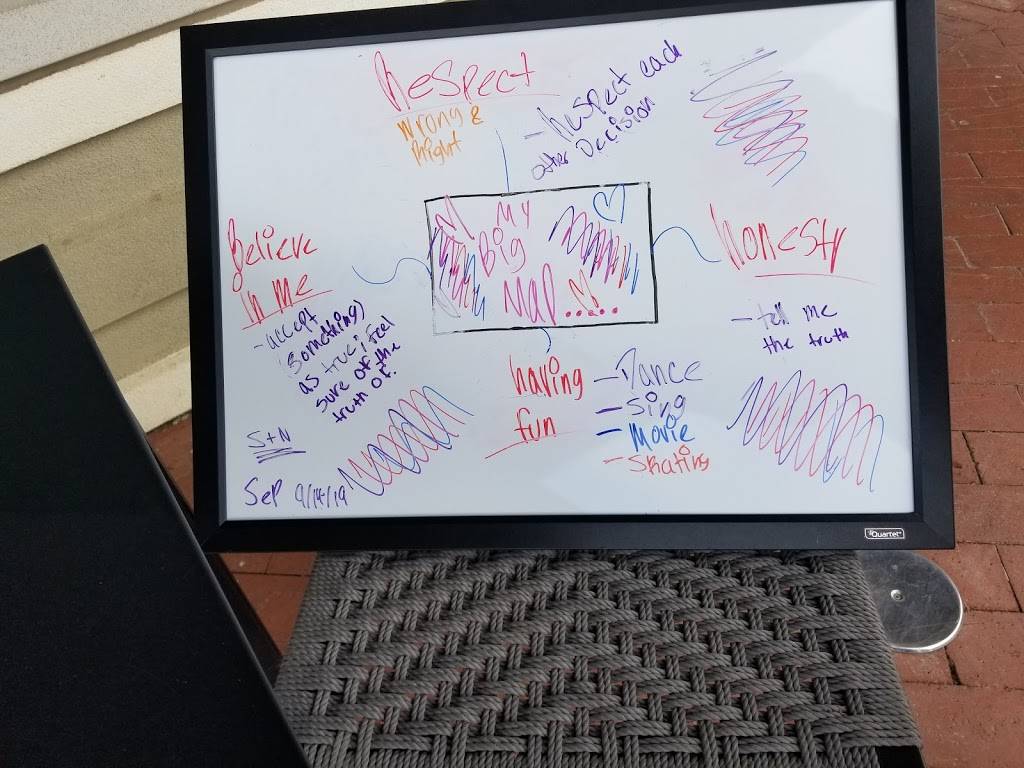 Respect
Wrong &
Right
- Respect each
other Decision
My
Big
Mad.....
Believe
in me
- accept
(something)
as true; feel
sure of the
truth of.
honesty
- tell me
the truth
having
fun
- Dance
- Sing
- Movie
- Skating
S+N
Sep 9/14/19
Quartet